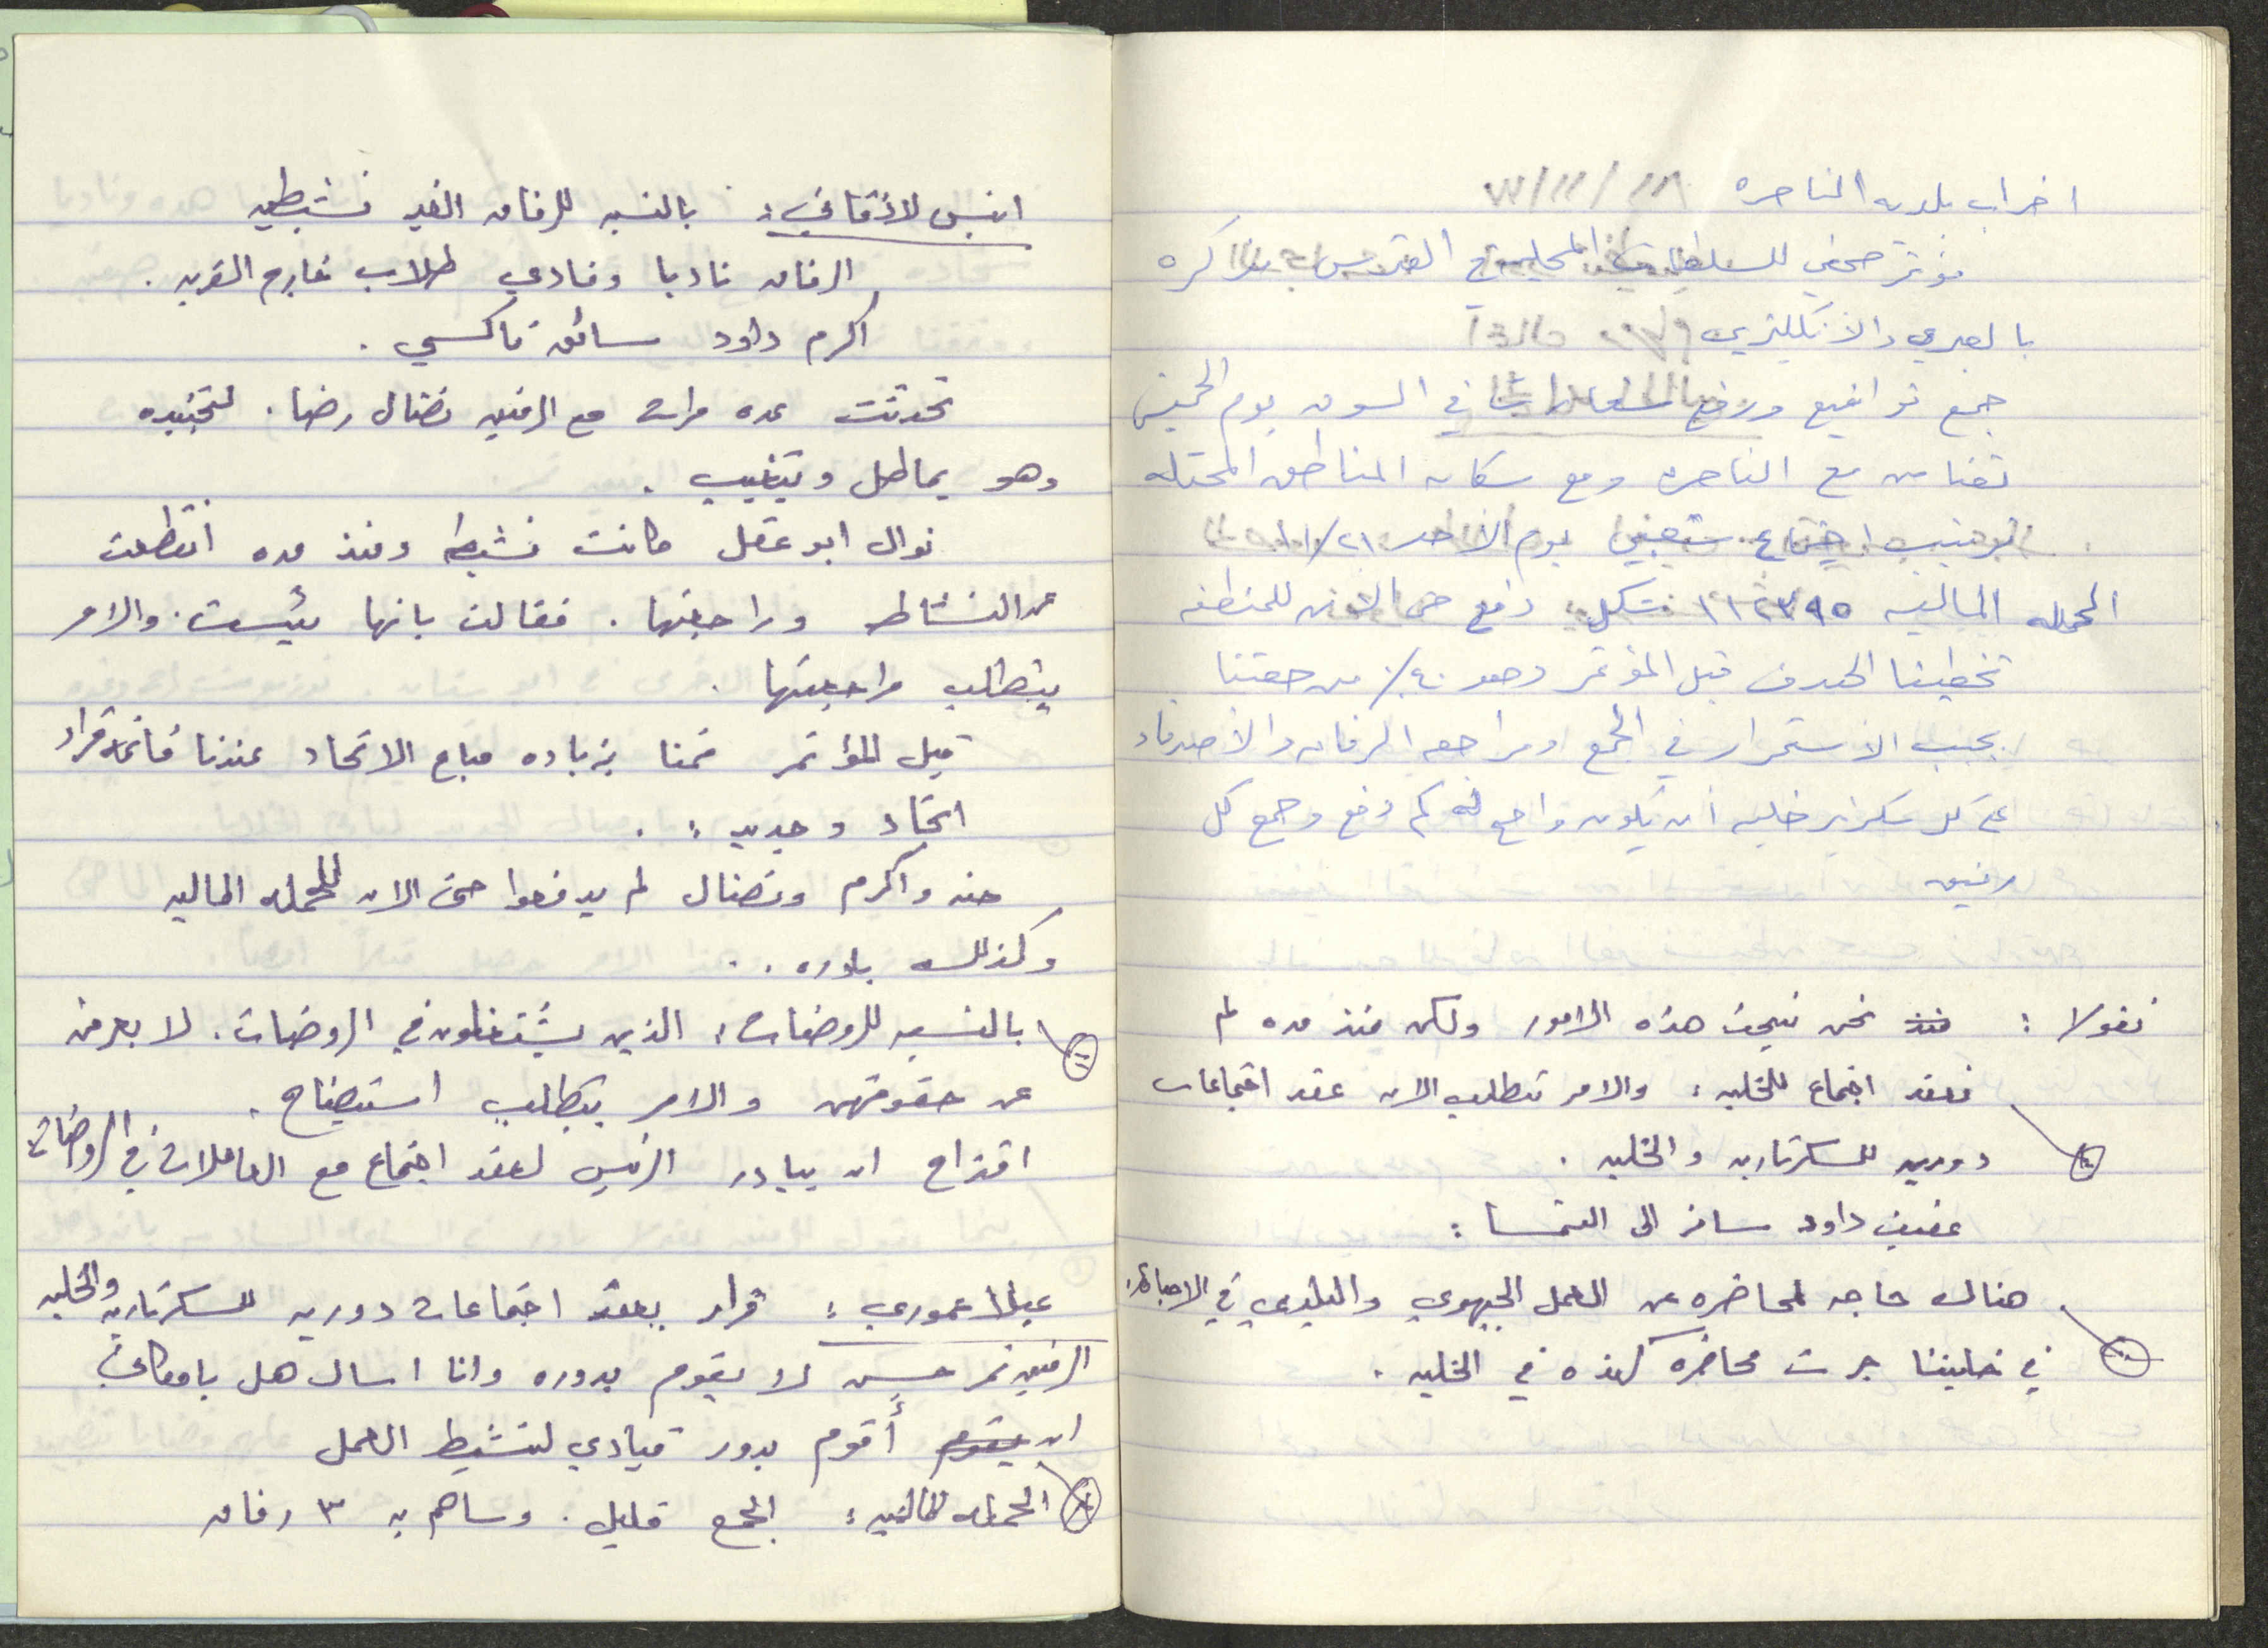 اضراب بلديه الناصره
مؤتمر صحفي للسلطات المحليه في القدس بكره
بالعبري والانكليزي
جمع تواقيع ورفع شعارات في السوق يوم الخميس
تضامن مع الناصره ومع سكان المناطق المحتله
ترتيب اجتماع شعبي يوم الاحد ١١/٢١
الحمله الماليه شكل دفع حتى الان للمنطقه
تخطينا الهدف قبل المؤتمر وهو ٤٠٪ من حصتنا
يجب الاستمرار في الجمع ومراجعه الرفاق والاصدقاء
على كل سكرتير خليه ان يكون واضح له كم دفع وجمع كل
رفيق
نقولا : نحن نبحث هذه الامور ولكن منذ مده لم
نعقد اجتماع للخليه : والامر تتطلب الان عقد اجتماعات
دوريه للسكرتاريه والخليه .
عفيف داود سافر الى النمسا :
هناك حاجه لمحاضره عن العمل الجبهوي والبلدي في
في خليتنا جرت محاضره كهذه في الخليه .
انيس لاذقاني : بالنسبه للرفاق الغير نشيطين
الرفاق ناديا وفادي طلاب خارج القريه .
اكرم داود سائق تاكسي .
تحدثت عده مرات مع الرفيق نضال رضا . لتجنيده
وهو يماطل ويتغيب .
نوال ابو عقل كانت نشيطه ومنذ مده انقطعت
عن النشاط وراجعتها . فقالت بانها يئست . والامر
يتطلب مراجعتها .
قبل المؤتمر قمنا بزياده مباع الاتحاد عندنا
اتحاد وجديد : .
حنه واكرم ونضال لم يدفعوا حتى الان للحمله الماليه
وكذلك
بالنسبه للروضات : الذين يشتغلون في الروضات . لا يعرفن
عن حقوقهن والامر يتطلب استيضاح .
اقتراح ان يبادر الرئيس لعقد اجتماع مع العاملات في الروضات
عبلا عموري : قرار بعقد اجتماعات دوريه للسكرتاريه والخليه
الرفيق نمر حسين لا يقوم بدوره وانا اسال هل بامكاني
ان يقوم أقوم بدور قيادي لتنشيط العمل
الحمله الماليه : الجمع قليل . وساهم به ٣ رفاق